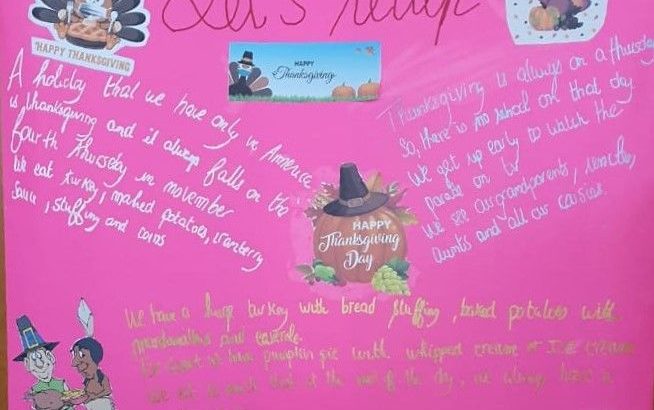 Let's recap
HAPPY THANKSGIVING
HAPPY
Thanksgiving
A holiday that we have only in America
is thanksgiving and it always falls on the
fourth Thursday in november
We eat turkey, mashed potatoes, cranberry
sauce, stuffing and corns
Thanksgiving is always on a thursday
So, there is no school on that day
We get up early to watch the
parade on tv
We see our grandparents,
aunts and all our
HAPPY
Thanksgiving
Day
We have a huge turkey with bread stuffing, baked potatoes with
and
we have pumpkin pie with whipped cream
We eat so much that at the end of the day, we always